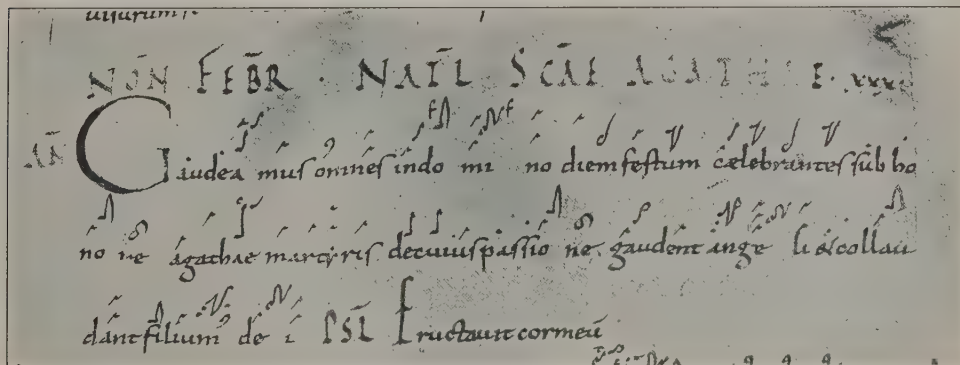 NŌN FEBR · NATL SCAE AGATHAE · xxx
AN Gaudeamus omnes in domino diem festum caelebrantes sub ho
nore agathae martyris de cuius passione gaudent ange li & collau
dant filium de i PSL Eructauit cor meū